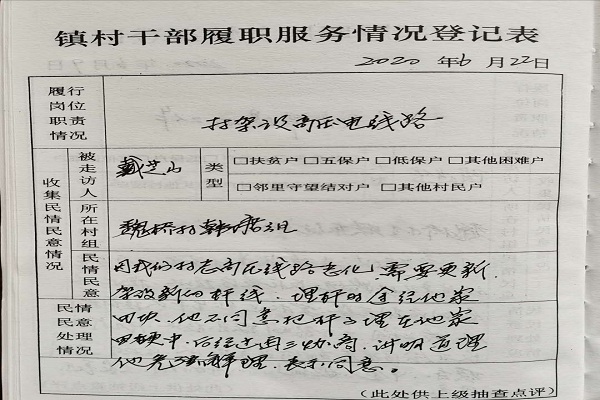 镇村干部履职服务情况登记表
2020 年6 月22日
履行岗位职责情况
村架设高压电线路
被走访人
戴芝山
类型
□扶贫户 □五保户 □低保户 □其他困难户
□邻里守望结对户 □其他村民户
收集民情民意情况
所在村组
魏桥村韩席组
民情民意
因我们村老高压线路老化,需要更新
架设新的杆线.埋杆时途经他家
民情民意处理情况
田块,他不同意把杆子埋在他家
田块中.后经过再三协商.讲明道理
他先理解.表示同意。
(此处供上级抽查点评)